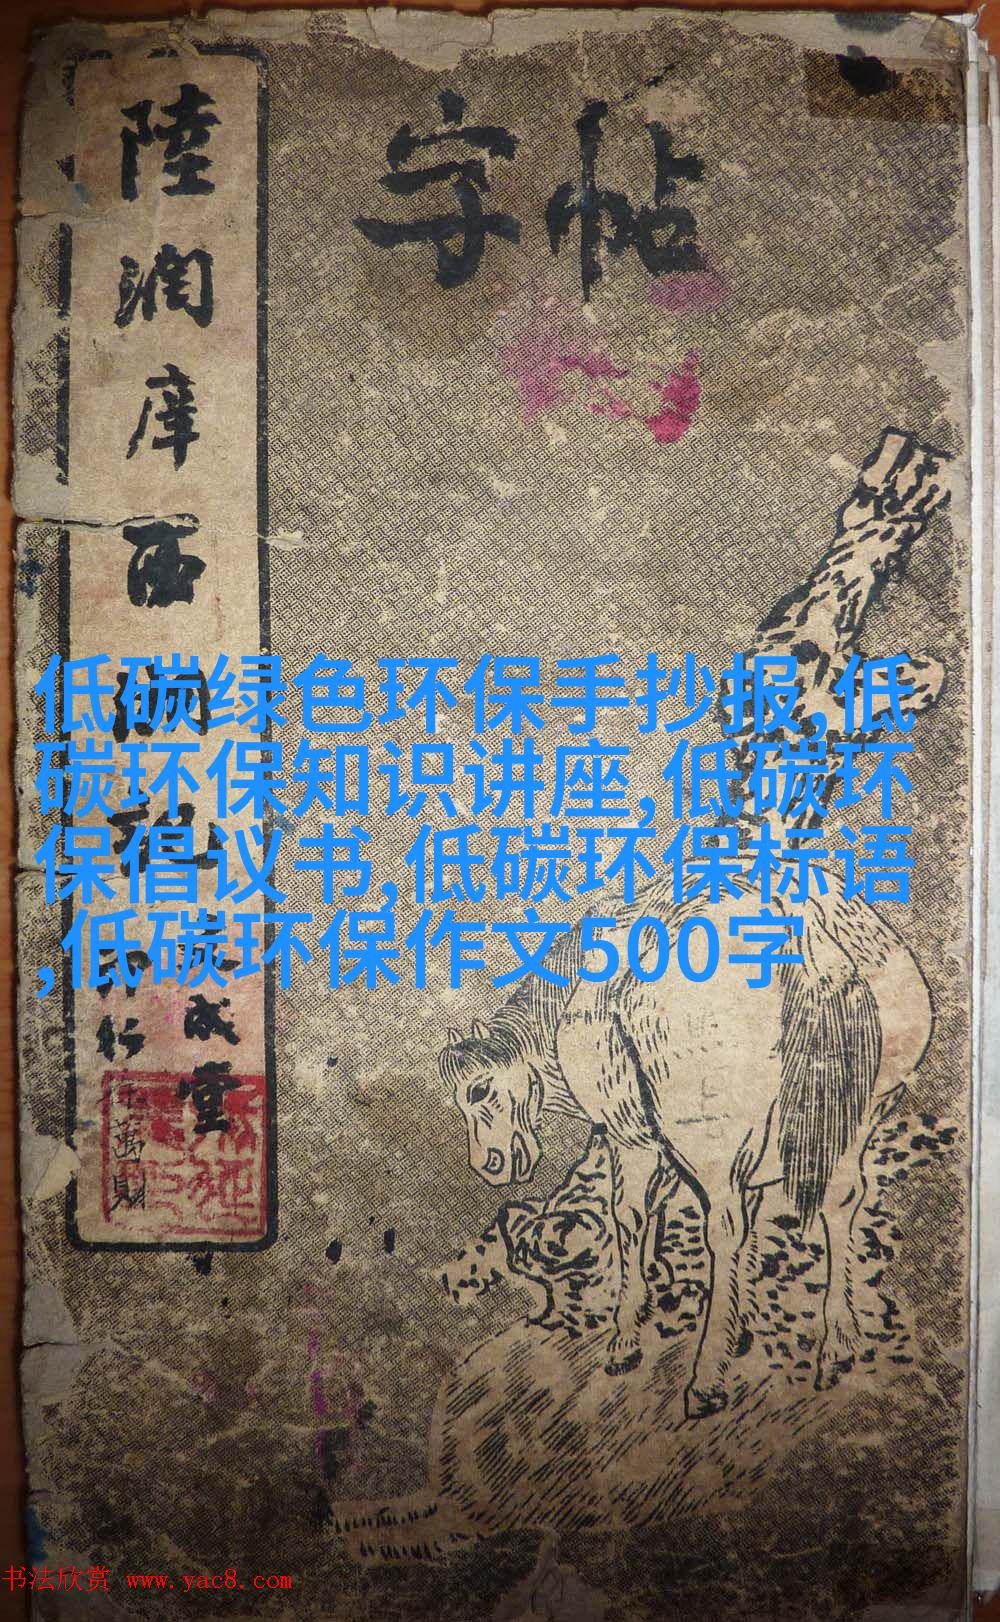 字帖
陸潤庠西湖記
成堂
萬財
低碳绿色环保手抄报,低
碳环保知识讲座,低碳环
保倡议书,低碳环保标语
,低碳环保作文500字
书法欣赏 www.yac8.com